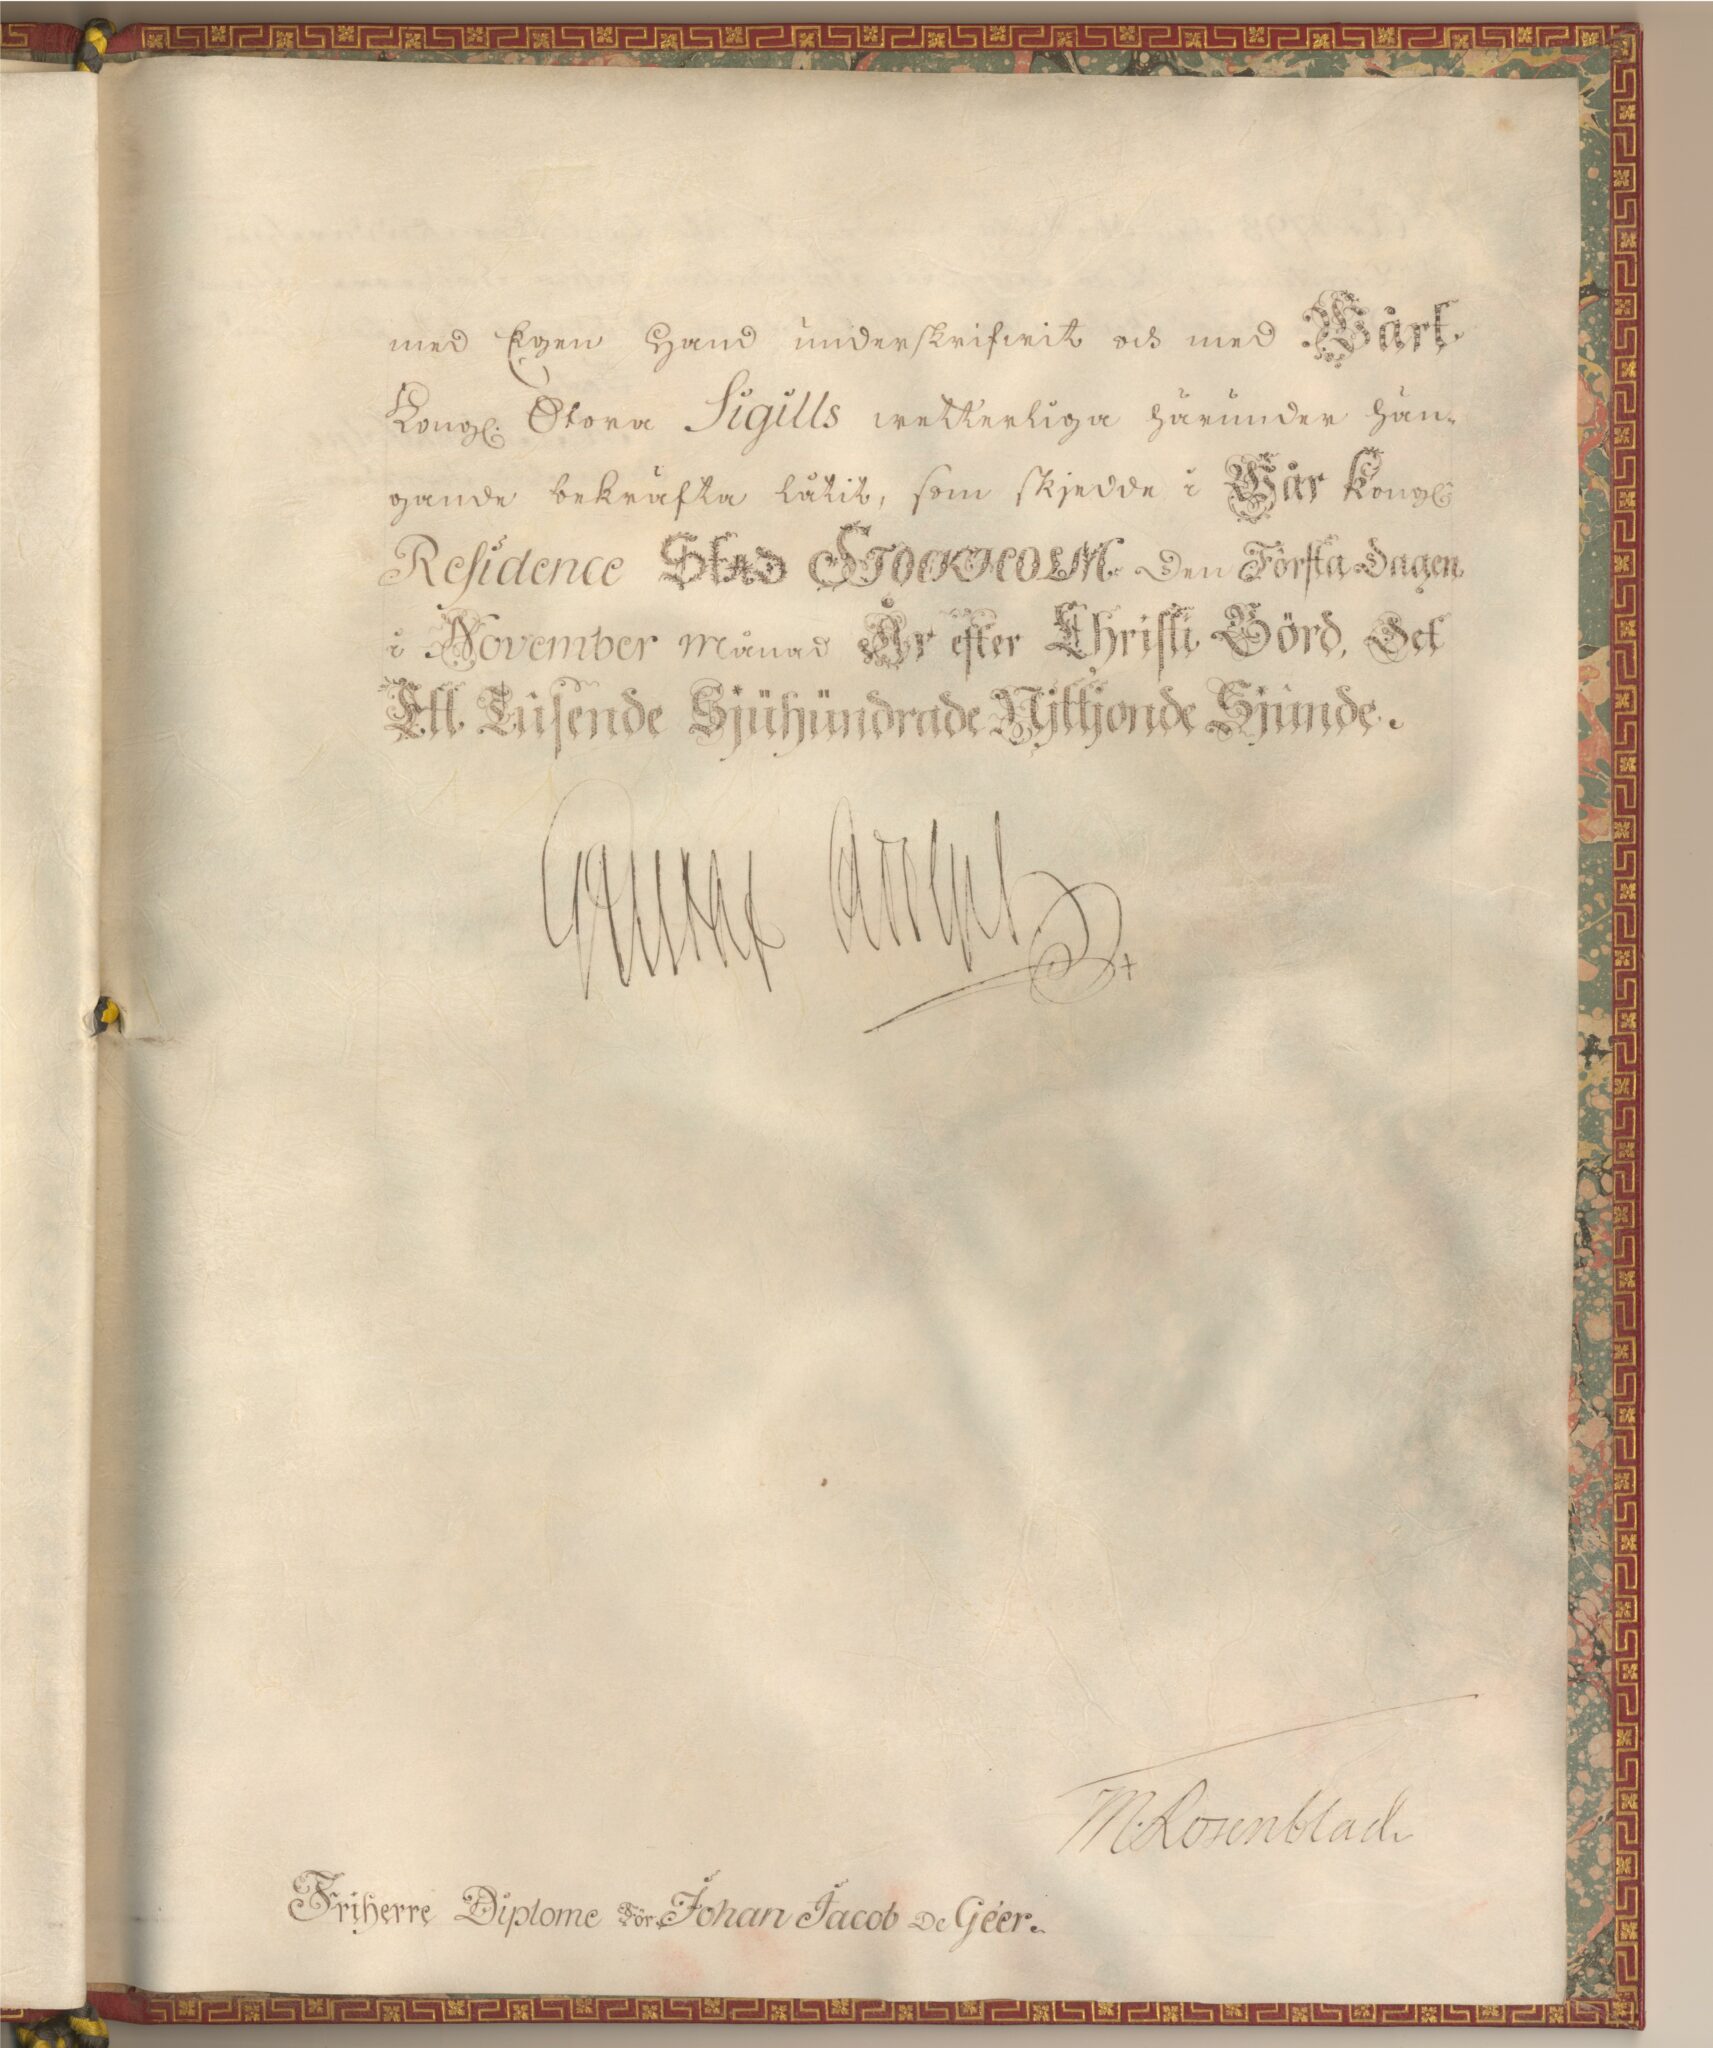 med Egen Hand underskrifwit och med Wårt
Kongl. Stora Sigills wetterliga härunder hän-
gande bekräfta låtit, som skjedde i Wår Kongl.
Residence Stad STOCKHOLM den Första Dagen
i November Månad År efter Christi Börd, Det
Ett Tusende Sjuhundrade Nijttjonde Sjunde.
Gustaf Adolph
M. Rosenblad.
Friherre Diplome för Johan Jacob De Géer.